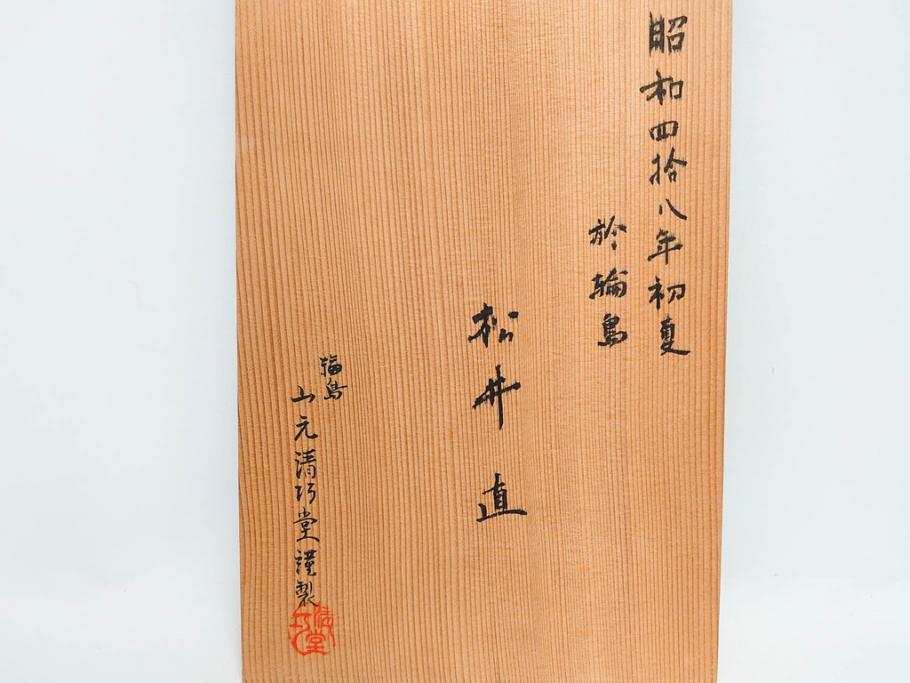 昭和四拾八年初夏
於輪島
松井直
輪島
山元清巧堂謹製